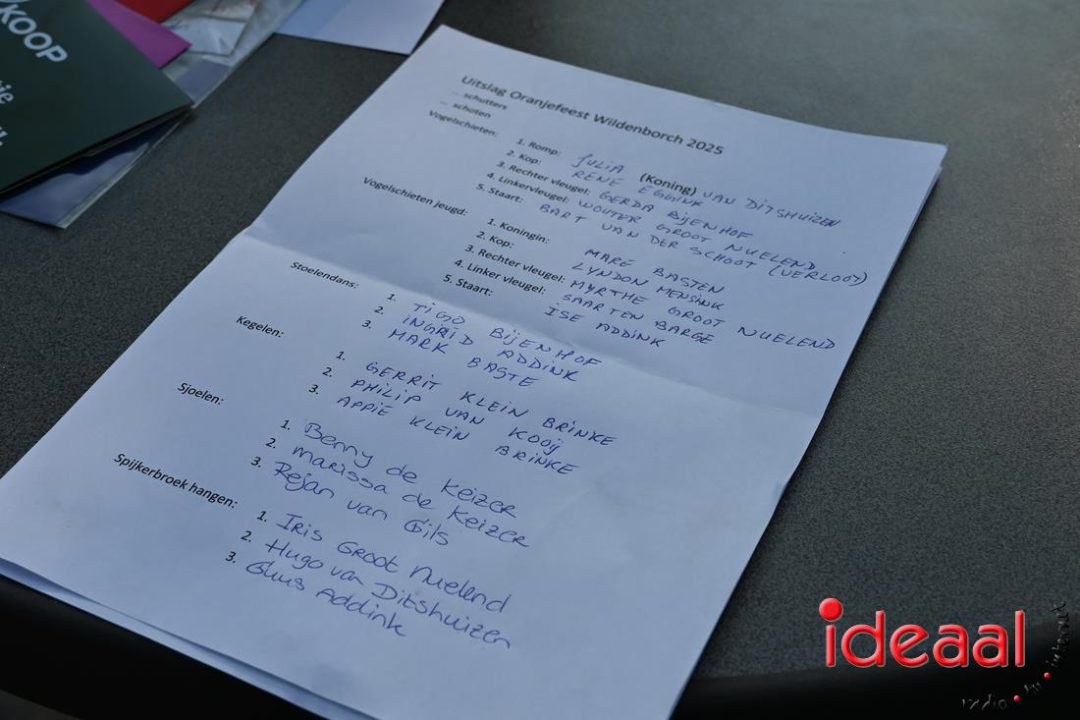 KOOP
Uitslag Oranjefeest Wildenborch 2025
... schutters
... schoten
Vogelschieten:
1. Romp: JULIA (Koning) VAN DITSHUIZEN
2. Kop: RENE EGGINK
3. Rechter vleugel: GERDA BIJENHOF
4. Linkervleugel: WOUTER GROOT NUELEND
5. Staart: BART VAN DER SCHOOT (VERLOOT)
Vogelschieten jeugd:
1. Koningin: MARE BASTEN
2. Kop: LYNDON MENSINK
3. Rechter vleugel: MYRTHE GROOT NUELEND
4. Linker vleugel: SAARTEN BARGE
5. Staart: ISE ADDINK
Stoelendans:
1. TIGO BIJENHOF
2. INGRID ADDINK
3. MARK BASTE
Kegelen:
1. GERRIT KLEIN BRINKE
2. PHILIP VAN KOOIJ
3. APPIE KLEIN BRINKE
Sjoelen:
1. Benny de Keizer
2. Marissa de Keizer
3. Rejan van Gils
Spijkerbroek hangen:
1. Iris Groot Nuelend
2. Hugo van Ditshuizen
3. Guus Addink
ideaal
radio tv internet